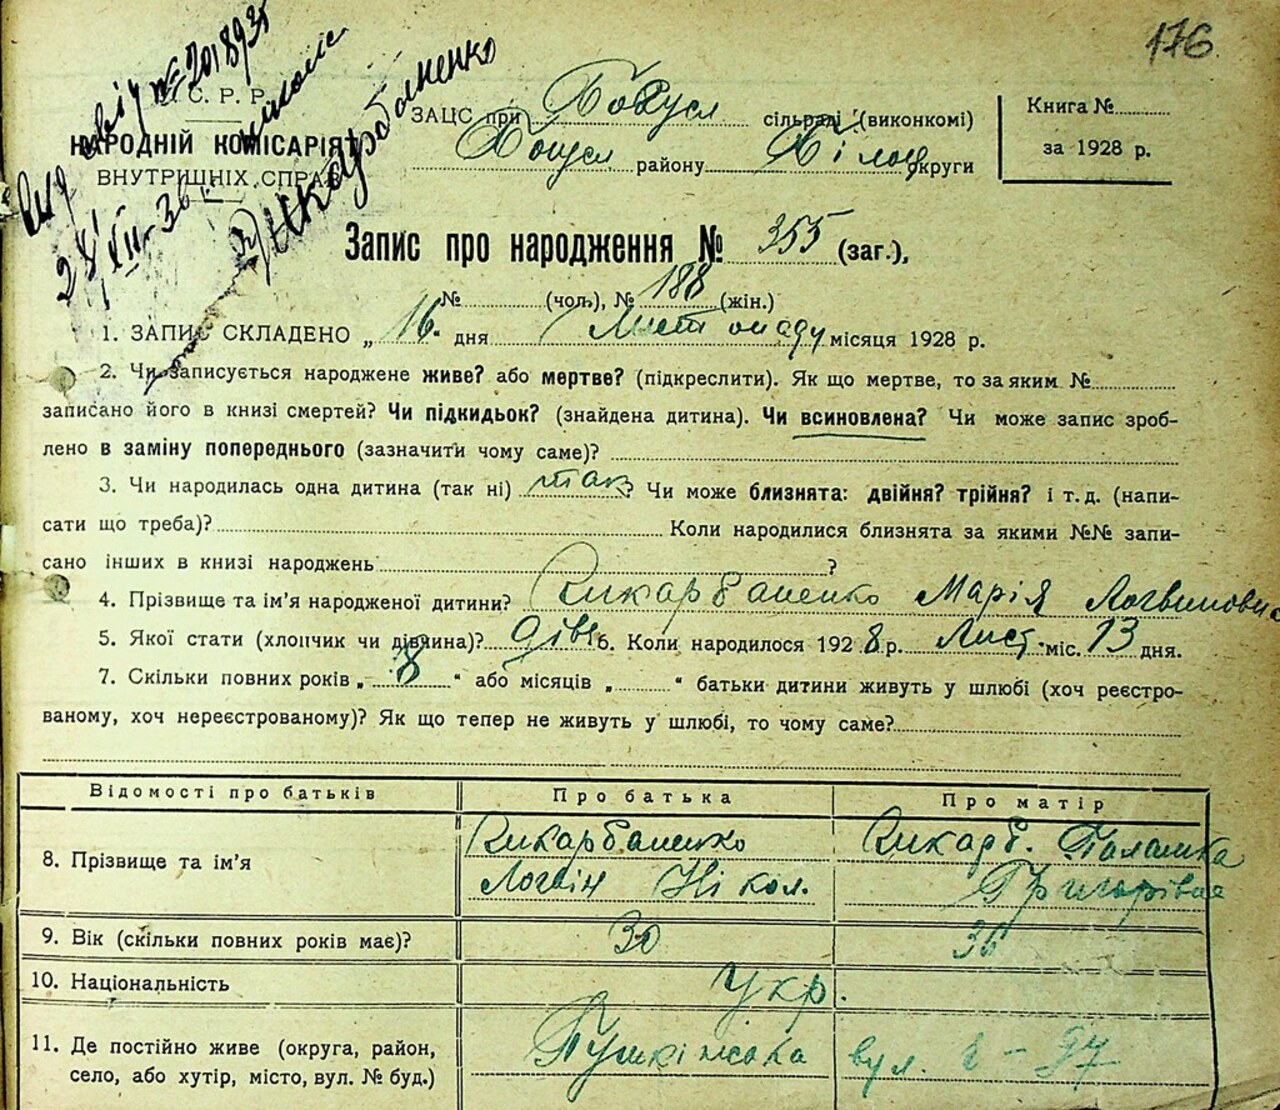 176
У. С. Р. Р.
НАРОДНІЙ КОМІСАРІЯТ
ВНУТРІШНІХ СПРАВ
28/XII-36
ЗАЦС при сільраді (виконкомі)
району округи
Книга №
за 1928 р.
Запис про народження № 355 (заг.),
№ (чол.), № 188 (жін.)
1. ЗАПИС СКЛАДЕНО „ 16 " дня Листопаду місяця 1928 р.
2. Чи записується народжене живе? або мертве? (підкреслити). Як що мертве, то за яким №
записано його в книзі смертей? Чи підкидьок? (знайдена дитина). Чи всиновлена? Чи може запис зроб-
лено в заміну попереднього (зазначити чому саме)?
3. Чи народилась одна дитина (так ні) так? Чи може близнята: двійня? трійня? і т. д. (напи-
сати що треба)? Коли народилися близнята за якими №№ запи-
сано інших в книзі народжень ?
4. Прізвище та ім'я народженої дитини? Шкарбаненко Марія Логвиновна
5. Якої стати (хлопчик чи дівчина)? дівч 6. Коли народилося 1928 р. Лист. міс. 13 дня.
7. Скільки повних років „ 8 " або місяців „ " батьки дитини живуть у шлюбі (хоч реєстро-
ваному, хоч нереєстрованому)? Як що тепер не живуть у шлюбі, то чому саме?
Відомості про батьків Про батька Про матір
8. Прізвище та ім'я Шкарбаненко Логвін Нікол. Шкарб. Палашка Григорівна
9. Вік (скільки повних років має)? 30 36
10. Національність Укр.
11. Де постійно живе (округа, район, Пушкінська вул.
село, або хутір, місто, вул. № буд.)